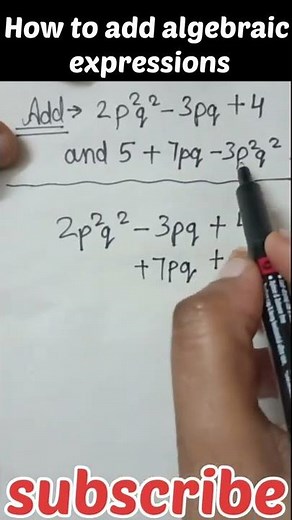 How to add algebraic
expressions
Add → 2p²q² - 3pq + 4
and 5 + 7pq - 3p²q²
2p²q² - 3pq +
+7pq +
subscribe